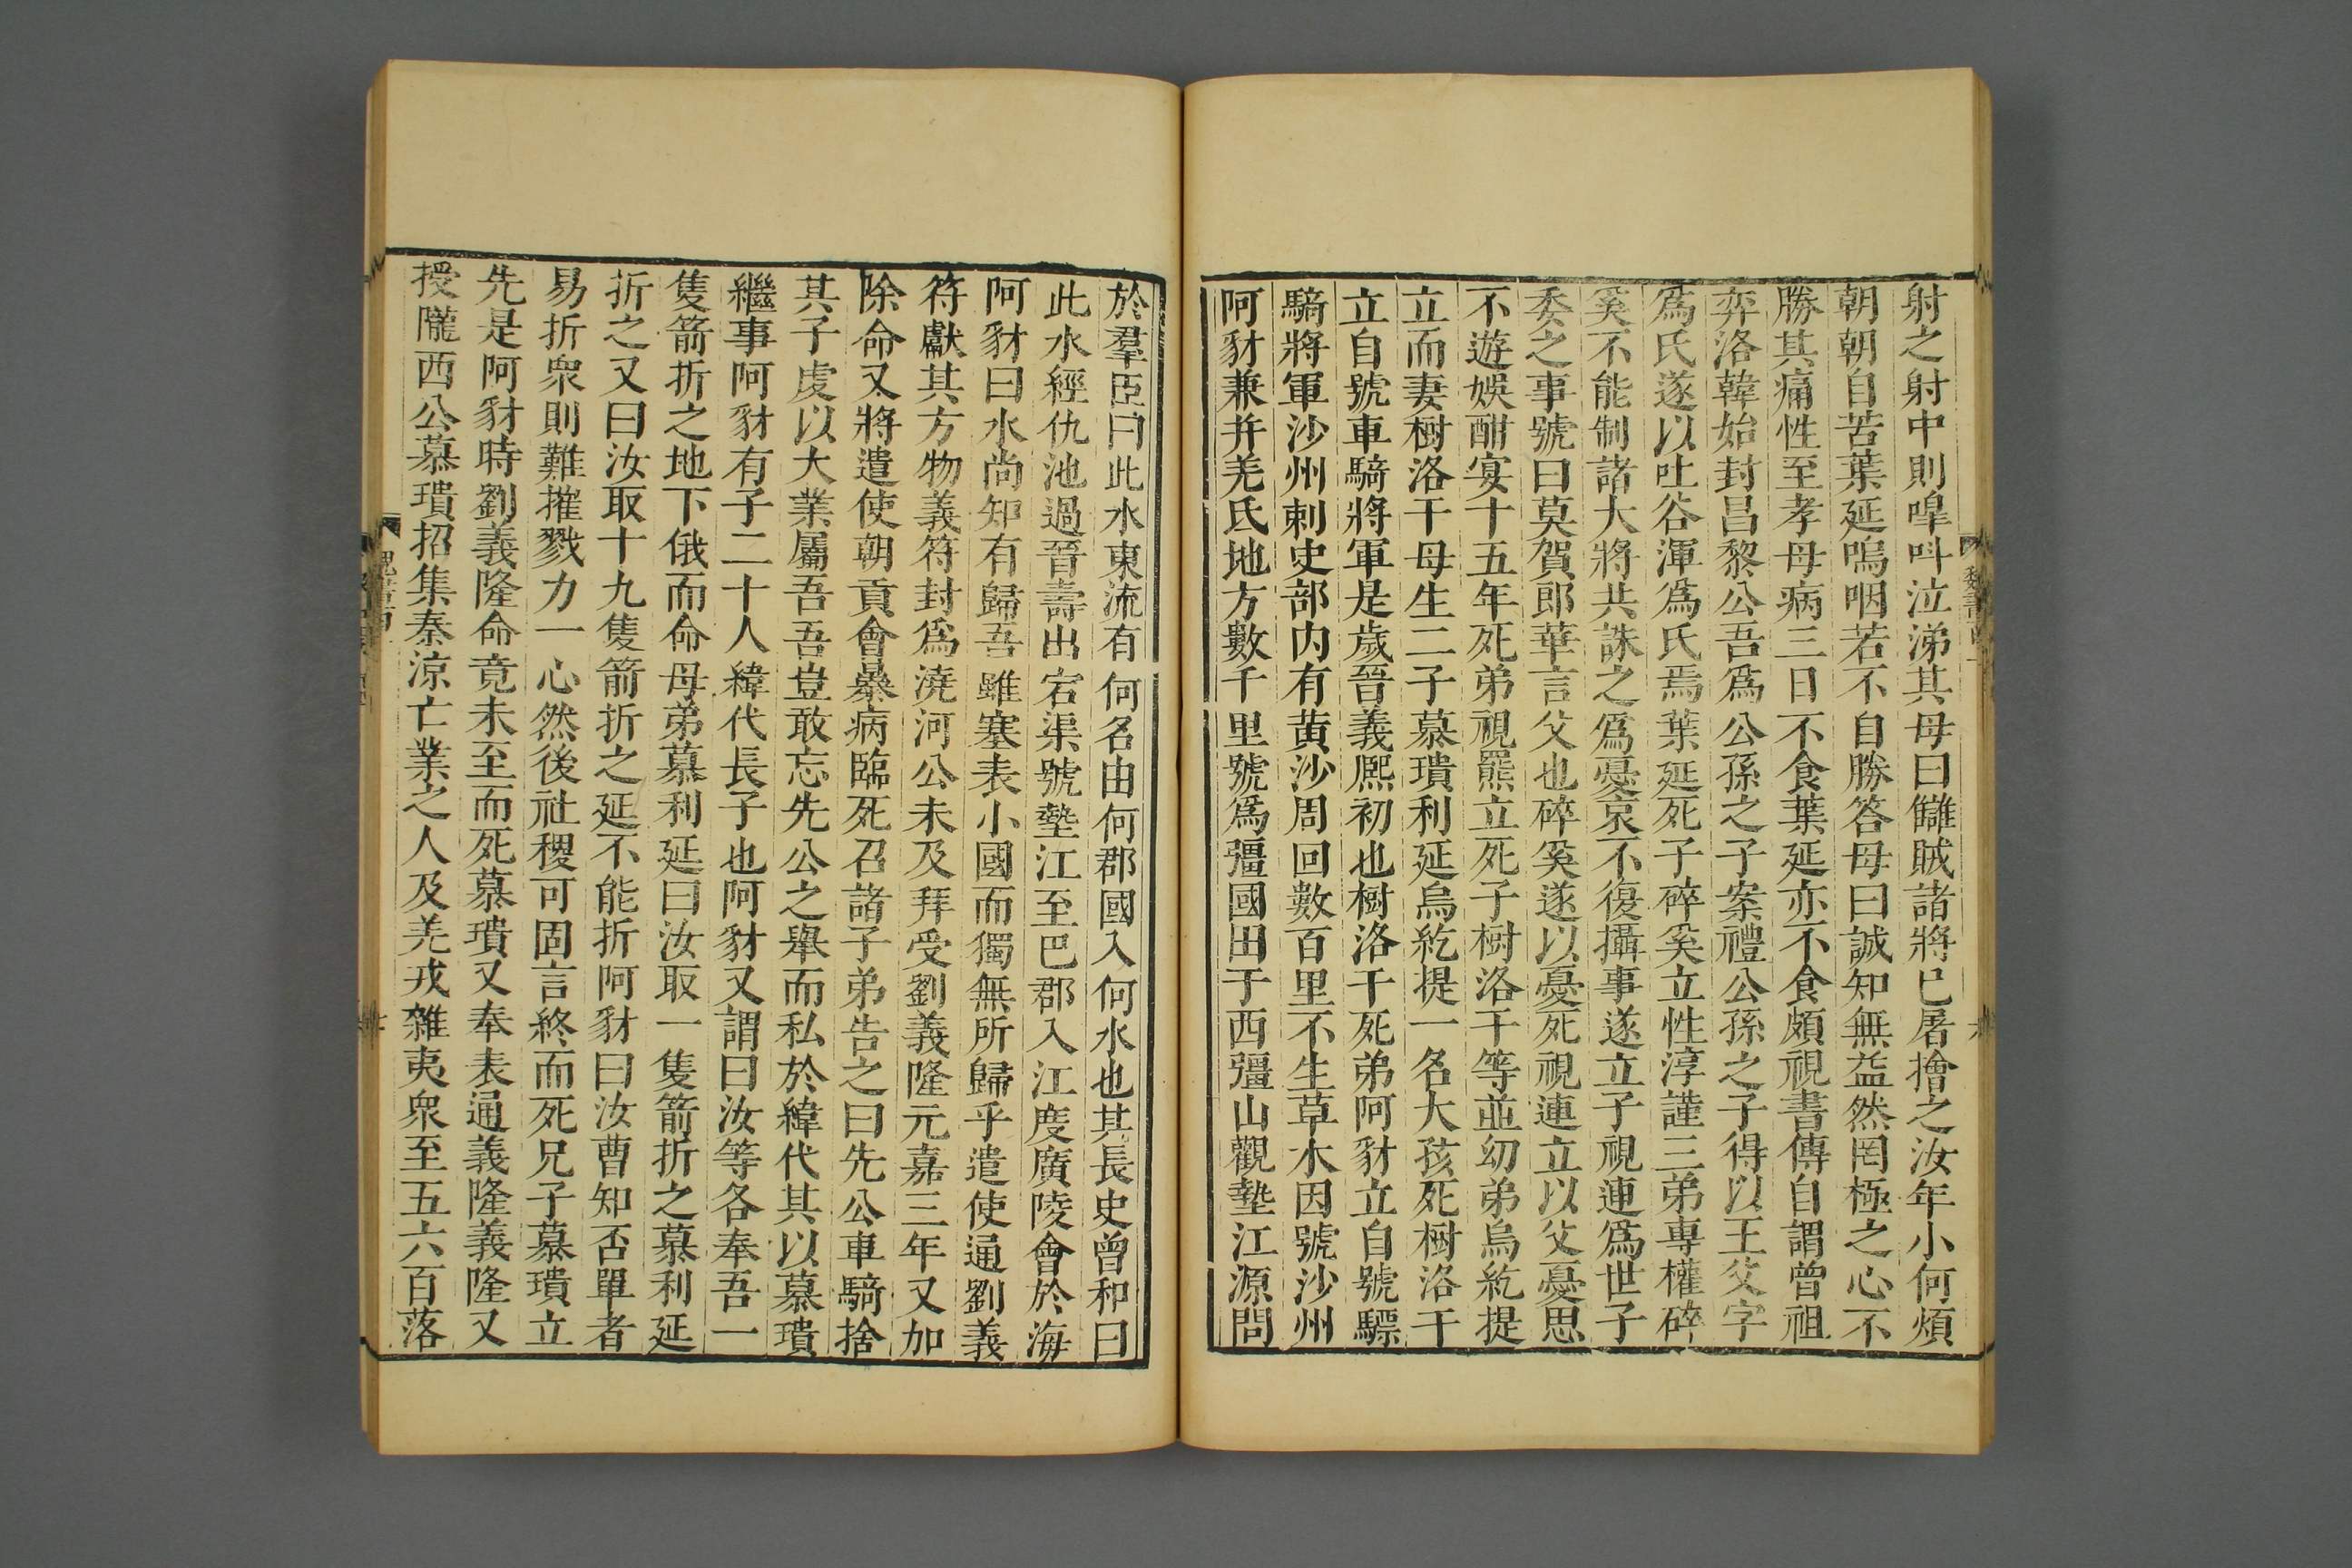 射之射中則嘷呌泣涕其母曰讎賊諸將已屠擒之汝年小何煩
朝朝自苦葉延嗚咽若不自勝答母曰誠知無益然罔極之心不
勝其痛性至孝母病三日不食葉延亦不食頗視書傳自謂曾祖
弈洛韓始封昌黎公吾爲公孫之子案禮公孫之子得以王父字
爲氏遂以吐谷渾爲氏焉葉延死子碎奚立性淳謹三弟專權碎
奚不能制諸大將共誅之爲憂哀不復攝事遂立子視連爲世子
委之事號曰莫賀郎華言父也碎奚遂以憂死視連立以父憂思
不遊娛酣宴十五年死弟視羆立死子樹洛干等並幼弟烏紇提
立而妻樹洛干母生二子慕璝利延烏紇提一名大孩死樹洛干
立自號車騎將軍是歲晉義熙初也樹洛干死弟阿豺立自號驃
騎將軍沙州刺史部内有黄沙周回數百里不生草木因號沙州
阿豺兼并羌氐地方數千里號爲彊國田于西彊山觀墊江源問
於羣臣曰此水東流有何名由何郡國入何水也其長史曾和曰
此水經仇池過晉壽出宕渠號墊江至巴郡入江度廣陵會於海
阿豺曰水尚知有歸吾雖塞表小國而獨無所歸乎遣使通劉義
符獻其方物義符封爲澆河公未及拜受劉義隆元嘉三年又加
除命又將遣使朝貢會暴病臨死召諸子弟告之曰先公車騎捨
其子虔以大業屬吾吾豈敢忘先公之舉而私於緯代其以慕璝
繼事阿豺有子二十人緯代長子也阿豺又謂曰汝等各奉吾一
隻箭折之地下俄而命母弟慕利延曰汝取一隻箭折之慕利延
折之又曰汝取十九隻箭折之延不能折阿豺曰汝曹知否單者
易折衆則難摧戮力一心然後社稷可固言終而死兄子慕璝立
先是阿豺時劉義隆命竟未至而死慕璝又奉表通義隆義隆又
授隴西公慕璝招集秦涼亡業之人及羌戎雜夷衆至五六百落